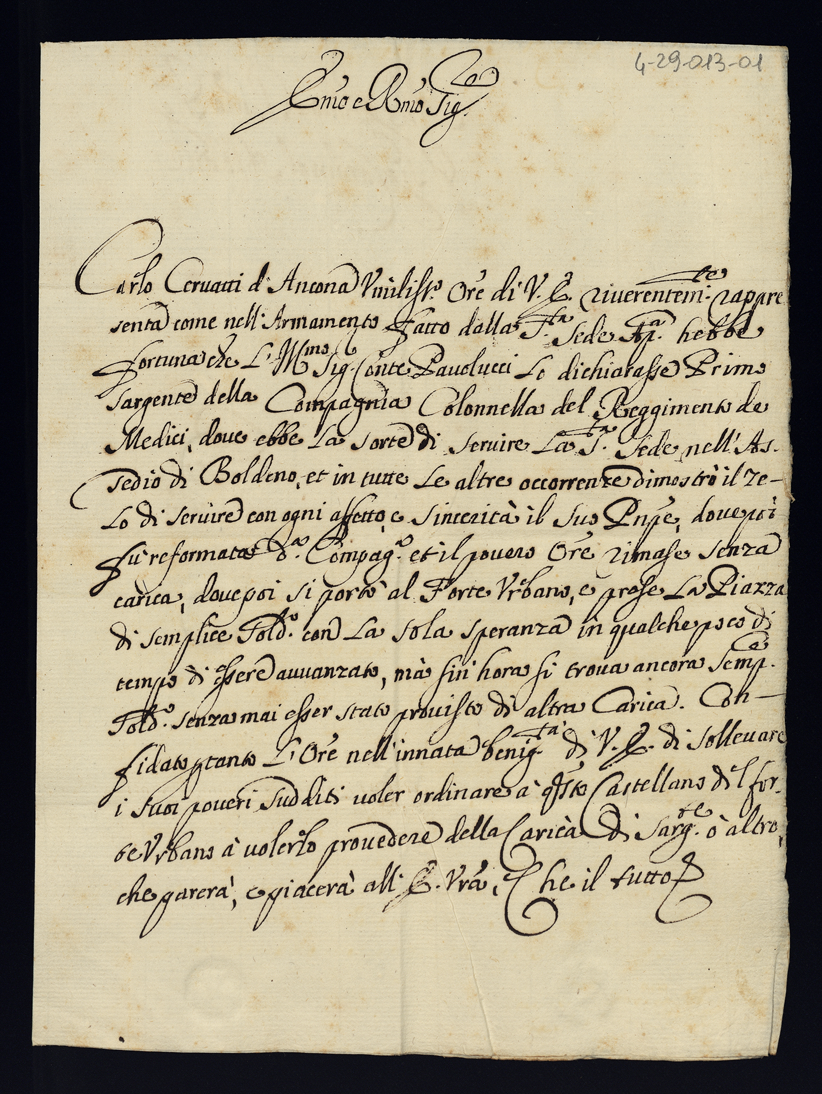 4-29-013-01
Emo e Rmo Sig.re
Carlo Ceruatti d'Ancona Vmiliss.o Ore di V. E. riuerentem.te rapre
senta come nell'Armamento fatto dalla S.ta Sede Ap.ca hebbe
fortuna che L'Ill.mo Sig. Conte Pauolucci Lo dichiarasse Primo
Sargente della Compagnia Colonnella del Reggimento de
Medici, doue ebbe La sorte di seruire La S.ta Sede nell'As-
sedio di Boldeno, et in tutte Le altre occorrenze dimostrò il Ze-
Lo di seruire con ogni affetto, e sincerità il suo Pnpe, doue poi
fu reformata d.a Compag.a et il pouero Ore rimase senza
carica, doue poi si portò al Forte Vrbano, e prese La Piazza
di semplice Sold.o con La sola speranza in qualche poco di
tempo di essere auuanzato, mà sin'hora si troua ancora semp.e
Sold.o senza mai esser stato prouisto di altra Carica. Con-
fidato ptanto L'Ore nell'innata benig.tà di V. E. di solleuare
i suoi poueri sudditi voler ordinare à qsto Castellano del for-
te Vrbano à volerlo prouedere della Carica di Sarg.te ò altro
che parerà, e piacerà all'E. Vra, Che il tutto